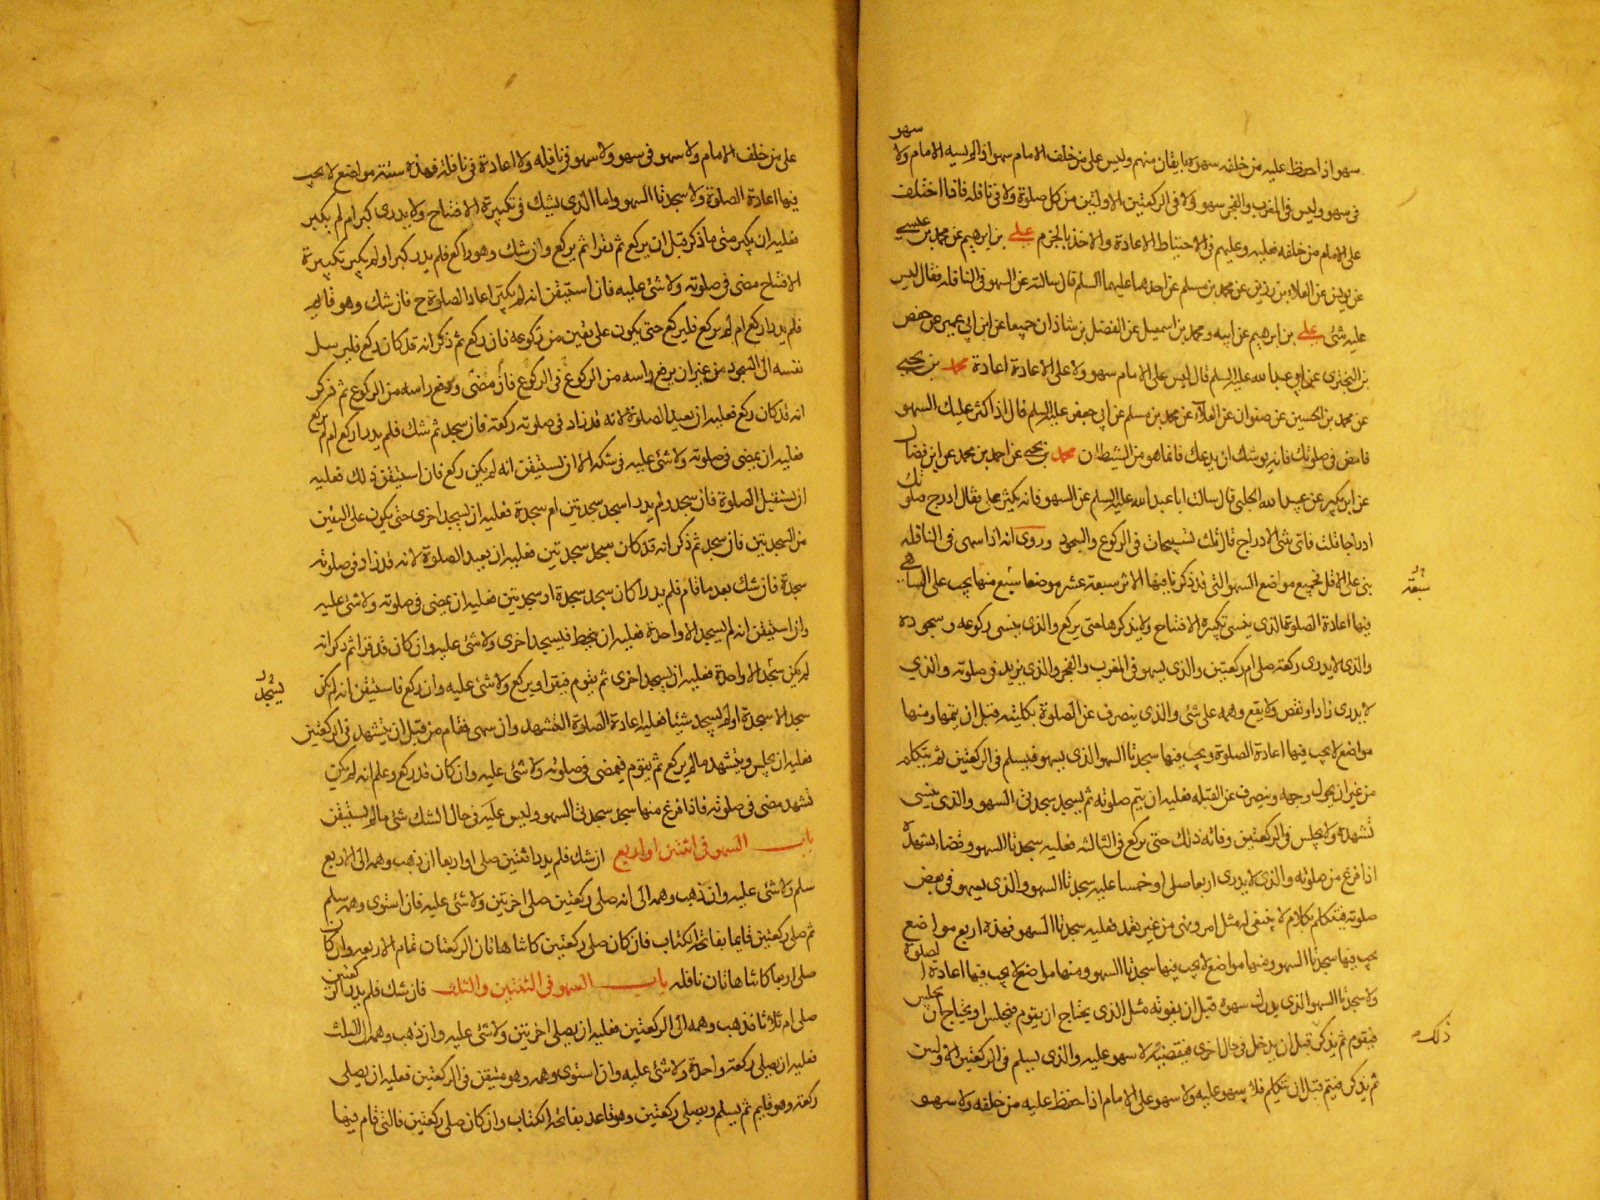 سهو
سهو اذا حفظ عليه من خلفه سهوه بايقان منهم وليس على من خلف الامام سهو اذا لم يسه الامام ولا
فى سهو وليس فى المغرب والفجر سهو ولا فى الركعتين الاولتين من كل صلوة ولا فى نافلة فاذا اختلف
على الامام من خلفه فعليه وعليهم فى الاحتياط الاعادة والاخذ بالجزم على بن ابرهيم عن محمد بن عيسى
عن يونس عن العلاء بن رزين عن محمد بن مسلم عن احدهما عليهما السلم قال سالته عن السهو فى النافله فقال ليس
عليه شئ على بن ابرهيم عن ابيه ومحمد بن اسمعيل عن الفضل بن شاذان جميعا عن ابن ابى عمير عن حفص
بن البخترى عن ابى عبد الله عليه السلم قال ليس على الامام سهو ولا على الاعادة اعادة محمد بن يحيى
عن محمد بن الحسين عن صفوان عن العلا عن محمد بن مسلم عن ابى جعفر عليه السلم قال اذا كثر عليك السهو
فامض فى صلوتك فانه يوشك ان يدعك فانما هو من الشيطان محمد بن يحيى عن احمد بن محمد عن ابن فضال
عن ابن بكير عن عبيد الله الحلبى قال سالت ابا عبد الله عليه السلم عن السهو فانه يكثر على فقال ادرج صلوتك
ادراجا قلت فاى شئ الادراج قال ثلث تسبيحات فى الركوع والسجود وروى انه اذا سهى فى النافله
بنى على الاقل فجميع مواضع السهو التى قد ذكرنا فيها الاثر سبعة عشر موضعا سبع منها يجب على الساهى
سبعة
فيها اعادة الصلوة الذى ينسى تكبيرة الافتتاح ولا يذكرها حتى يركع والذى ينسى ركوعه وسجوده
والذى لا يدرى ركعة صلى ام ركعتين والذى يسهو فى المغرب والفجر والذى يزيد فى صلوته والذى
لا يدرى زاد او نقص ولا يقع وهمه على شئ والذى ينصرف عن الصلوة بكليته قبل ان يتمها ومنها
مواضع لا يجب فيها اعادة الصلوة ويجب فيها سجدتا السهو الذى يسهو فيسلم فى الركعتين ثم يتكلم
من غير ان يحول وجهه وينصرف عن القبله فعليه ان يتم صلوته ثم يسجد سجدتى السهو والذى ينسى
تشهده ولا يجلس فى الركعتين وفاته ذلك حتى يركع فى الثالثه فعليه سجدتا السهو وقضاء تشهده
اذا فرغ من صلوته والذى لا يدرى اربعا صلى او خمسا عليه سجدتا السهو والذى يسهو فى بعض
صلوته فيتكلم بكلام لا ينبغى له مثل امر ونهى من غير تعمد فعليه سجدتا السهو فهذه اربع مواضع
يجب فيها سجدتا السهو ومنها مواضع لا يجب فيها سجدتا السهو ومنها مواضع لا يجب فيها اعادة الصلوة
ولا سجدتا السهو الذى يدرك سهوه قبل ان يفوته مثل الذى يحتاج ان يقوم فيجلس او يحتاج ان يجلس
فيقوم ثم يذكر قبل ان يدخل فى حال اخرى فيقضيه لا سهو عليه والذى يسلم فى الركعتين الاولتين
ذلك
ثم يذكر فيتم قبل ان يتكلم فلا سهو عليه ولا سهو على الامام اذا حفظ عليه من خلفه ولا سهو
على من خلف الامام ولا سهو فى سهو ولا سهو فى نافله ولا اعادة فى نافلة فهذه ستة مواضع لا يجب
فيها اعادة الصلوة ولا سجدتا السهو واما الذى يشك فى تكبيرة الافتتاح ولا يدرى كبر ام لم يكبر
فعليه ان يكبر متى ما ذكر قبل ان يركع ثم يقرا ثم يركع وان شك وهو راكع فلم يدر كبر او لم يكبر تكبيرة
الافتتاح مضى فى صلوته ولا شئ عليه فان استيقن انه لم يكبر اعاد الصلوة ح فان شك وهو قايم
فلم يدر اركع ام لم يركع فليركع حتى يكون على يقين من ركوعه فان ركع ثم ذكر انه قد كان ركع فليرسل
نفسه الى السجود من غير ان يرفع راسه من الركوع فى الركوع فان مضى ورفع راسه من الركوع ثم ذكر
انه قد كان ركع فعليه ان يعيد الصلوة لانه قد زاد فى صلوته ركعة فان سجد ثم شك فلم يدر اركع ام لم يركع
فعليه ان يمضى فى صلوته ولا شئ عليه فى شكه الا ان يستيقن انه لم يكن ركع فان استيقن ذلك فعليه
ان يستقبل الصلوة فان سجد ولم يدر اسجد سجدتين ام سجدة فعليه ان يسجد اخرى حتى يكون على اليقين
من السجدتين فان سجد ثم ذكر انه قد كان سجد سجدتين فعليه ان يعيد الصلوة لانه قد زاد فى صلوته
سجدة فان شك بعد ما قام فلم يدر اكان سجد سجدة او سجدتين فعليه ان يمضى فى صلوته ولا شئ عليه
وان استيقن انه لم يسجد الا واحدة فعليه ان ينحط فيسجد اخرى ولا شئ عليه وان كان قد قرا ثم ذكر انه
لم يكن سجد الا واحدة فعليه ان يسجد اخرى ثم يقوم فيقرا ويركع ولا شئ عليه وان ركع فاستيقن انه لم يكن
يسجد
سجد الا سجدة او لم يسجد شيئا فعليه اعادة الصلوة التشهد وان سهى فقام من قبل ان يتشهد فى الركعتين
فعليه ان يجلس ويتشهد ما لم يركع ثم يقوم فيمضى فى صلوته ولا شئ عليه وان كان قد ركع وعلم انه لم يكن
تشهد مضى فى صلوته فاذا فرغ منها سجد سجدتى السهو وليس عليه فى حال الشك شئ ما لم يستيقن
باب السهو فى اثنتين او اربع ان شك فلم يدر اثنتين صلى او اربعا ان ذهب وهمه الى الاربع
سلم ولا شئ عليه وان ذهب وهمه الى انه صلى ركعتين صلى اخرتين ولا شئ عليه فان استوى وهمه سلم
ثم صلى ركعتين قايما بفاتحة الكتاب فان كان صلى ركعتين كانتا هاتان الركعتان تمام الاربعه وان كان
صلى اربعا كانتا هاتان نافله باب السهو فى الثنتين والثلث فان شك فلم يدر اركعتين
صلى ام ثلاثا فذهب وهمه الى الركعتين فعليه ان يصلى اخرتين ولا شئ عليه وان ذهب وهمه الى الثلث
فعليه ان يصلى ركعة واحدة ولا شئ عليه وان استوى وهمه وهو متيقن فى الركعتين فعليه ان يصلى
ركعة وهو قايم ثم يسلم ويصلى ركعتين وهو قاعد بفاتحة الكتاب وان كان صلى ركعتين فالتى قام فيها